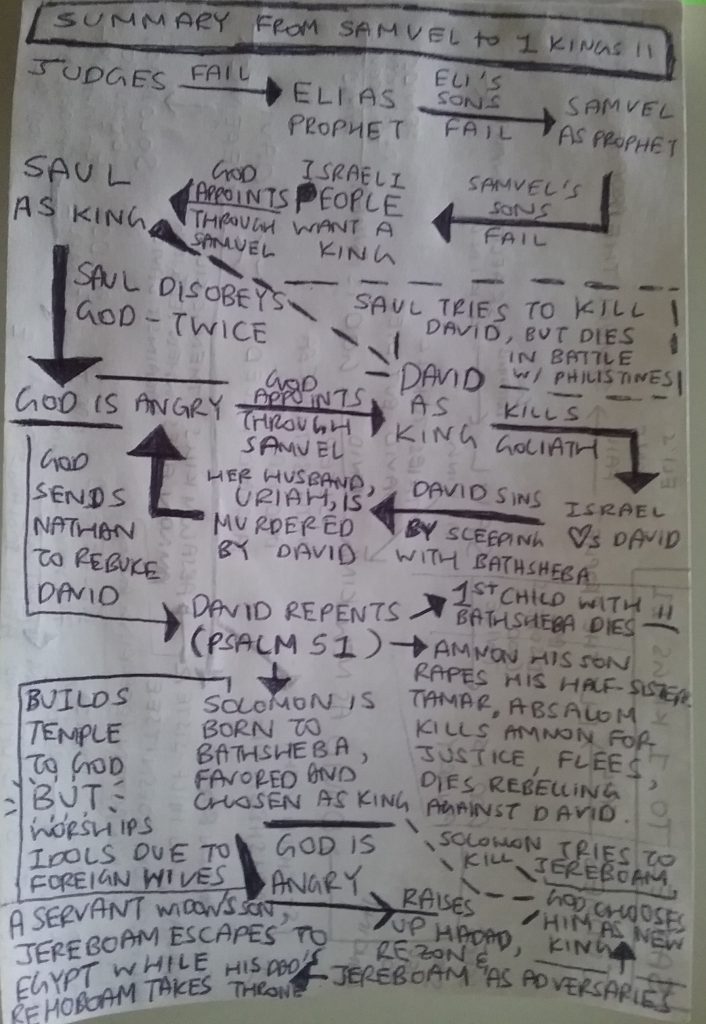 SUMMARY FROM SAMUEL to 1 KINGS 11
JUDGES
FAIL
ELI AS
PROPHET
ELI'S
SONS
FAIL
SAMUEL
AS PROPHET
SAMUEL'S
SONS
FAIL
ISRAELI
PEOPLE
WANT A
KING
GOD
APPOINTS
THROUGH
SAMUEL
SAUL
AS KING
SAUL DISOBEYS
GOD - TWICE
SAUL TRIES TO KILL
DAVID, BUT DIES
IN BATTLE
W/ PHILISTINES
GOD IS ANGRY
GOD
APPOINTS
THROUGH
SAMUEL
DAVID
AS
KING
KILLS
GOLIATH
ISRAEL
♡s DAVID
DAVID SINS
BY SLEEPING
WITH BATHSHEBA
HER HUSBAND,
URIAH, IS
MURDERED
BY DAVID
GOD
SENDS
NATHAN
TO REBUKE
DAVID
DAVID REPENTS
(PSALM 51)
1ST CHILD WITH
BATHSHEBA DIES
AMNON HIS SON
RAPES HIS HALF-SISTER
TAMAR, ABSALOM
KILLS AMNON FOR
JUSTICE, FLEES,
DIES REBELLING
AGAINST DAVID.
SOLOMON IS
BORN TO
BATHSHEBA,
FAVORED AND
CHOSEN AS KING
BUILDS
TEMPLE
TO GOD
BUT
WORSHIPS
IDOLS DUE TO
FOREIGN WIVES
GOD IS
ANGRY
RAISES
UP HADAD,
REZON &
JEREBOAM AS ADVERSARIES
GOD CHOOSES
HIM AS NEW
KING
SOLOMON TRIES TO
KILL JEREBOAM,
A SERVANT WIDOW'S SON,
JEREBOAM ESCAPES TO
EGYPT WHILE HIS DAD'S
REHOBOAM TAKES THRONE